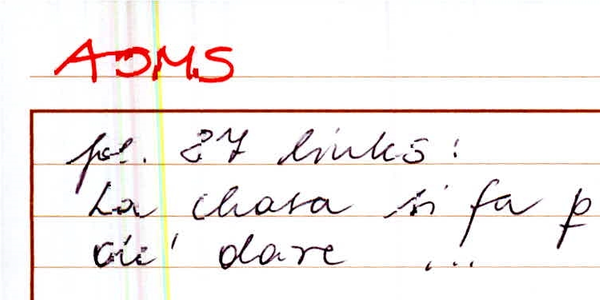 ADMS
fol. 27 links:
La chasa si fa p
dare ...